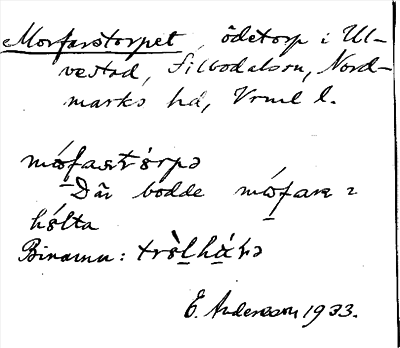 Morfarstorpet, ödetorp i Ul-
vestad, Silbodalssn, Nord-
marks hd, Vrml l.
mωfastɷrpə
Där bodde mωfar i
hɷlta
Binamn: trɷlhåɫə
E. Andersson 1933.